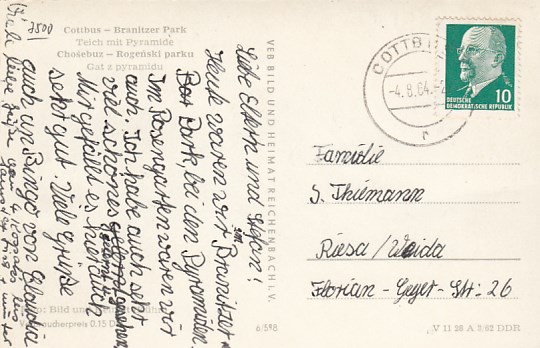 7500
Cottbus – Branitzer Park
Teich mit Pyramide
Chośebuz – Rogeński parku
Gat z pyramidu
Liebe Eltern und Stefan!
Heute waren wir im Branitzer
Park, bei den Pyramiden.
Im Rosengarten waren wir
auch. Ich habe auch sehr
viel schönes gesehen,
Mir gefällt es hier auch
sehr gut. Viele Grüße
auch an Ringo von Claudia
Viele liebe Grüße
VEB BILD UND HEIMAT REICHENBACH I. V.
Verbraucherpreis 0,15 D
6/598
COTTBUS
-4.8.64.-2
DEUTSCHE
DEMOKRATISCHE REPUBLIK
10
Familie
S. Thiemann
Riesa/Weida
Florian-Geyer-Str. 26
V 11 28 A 2/62 DDR